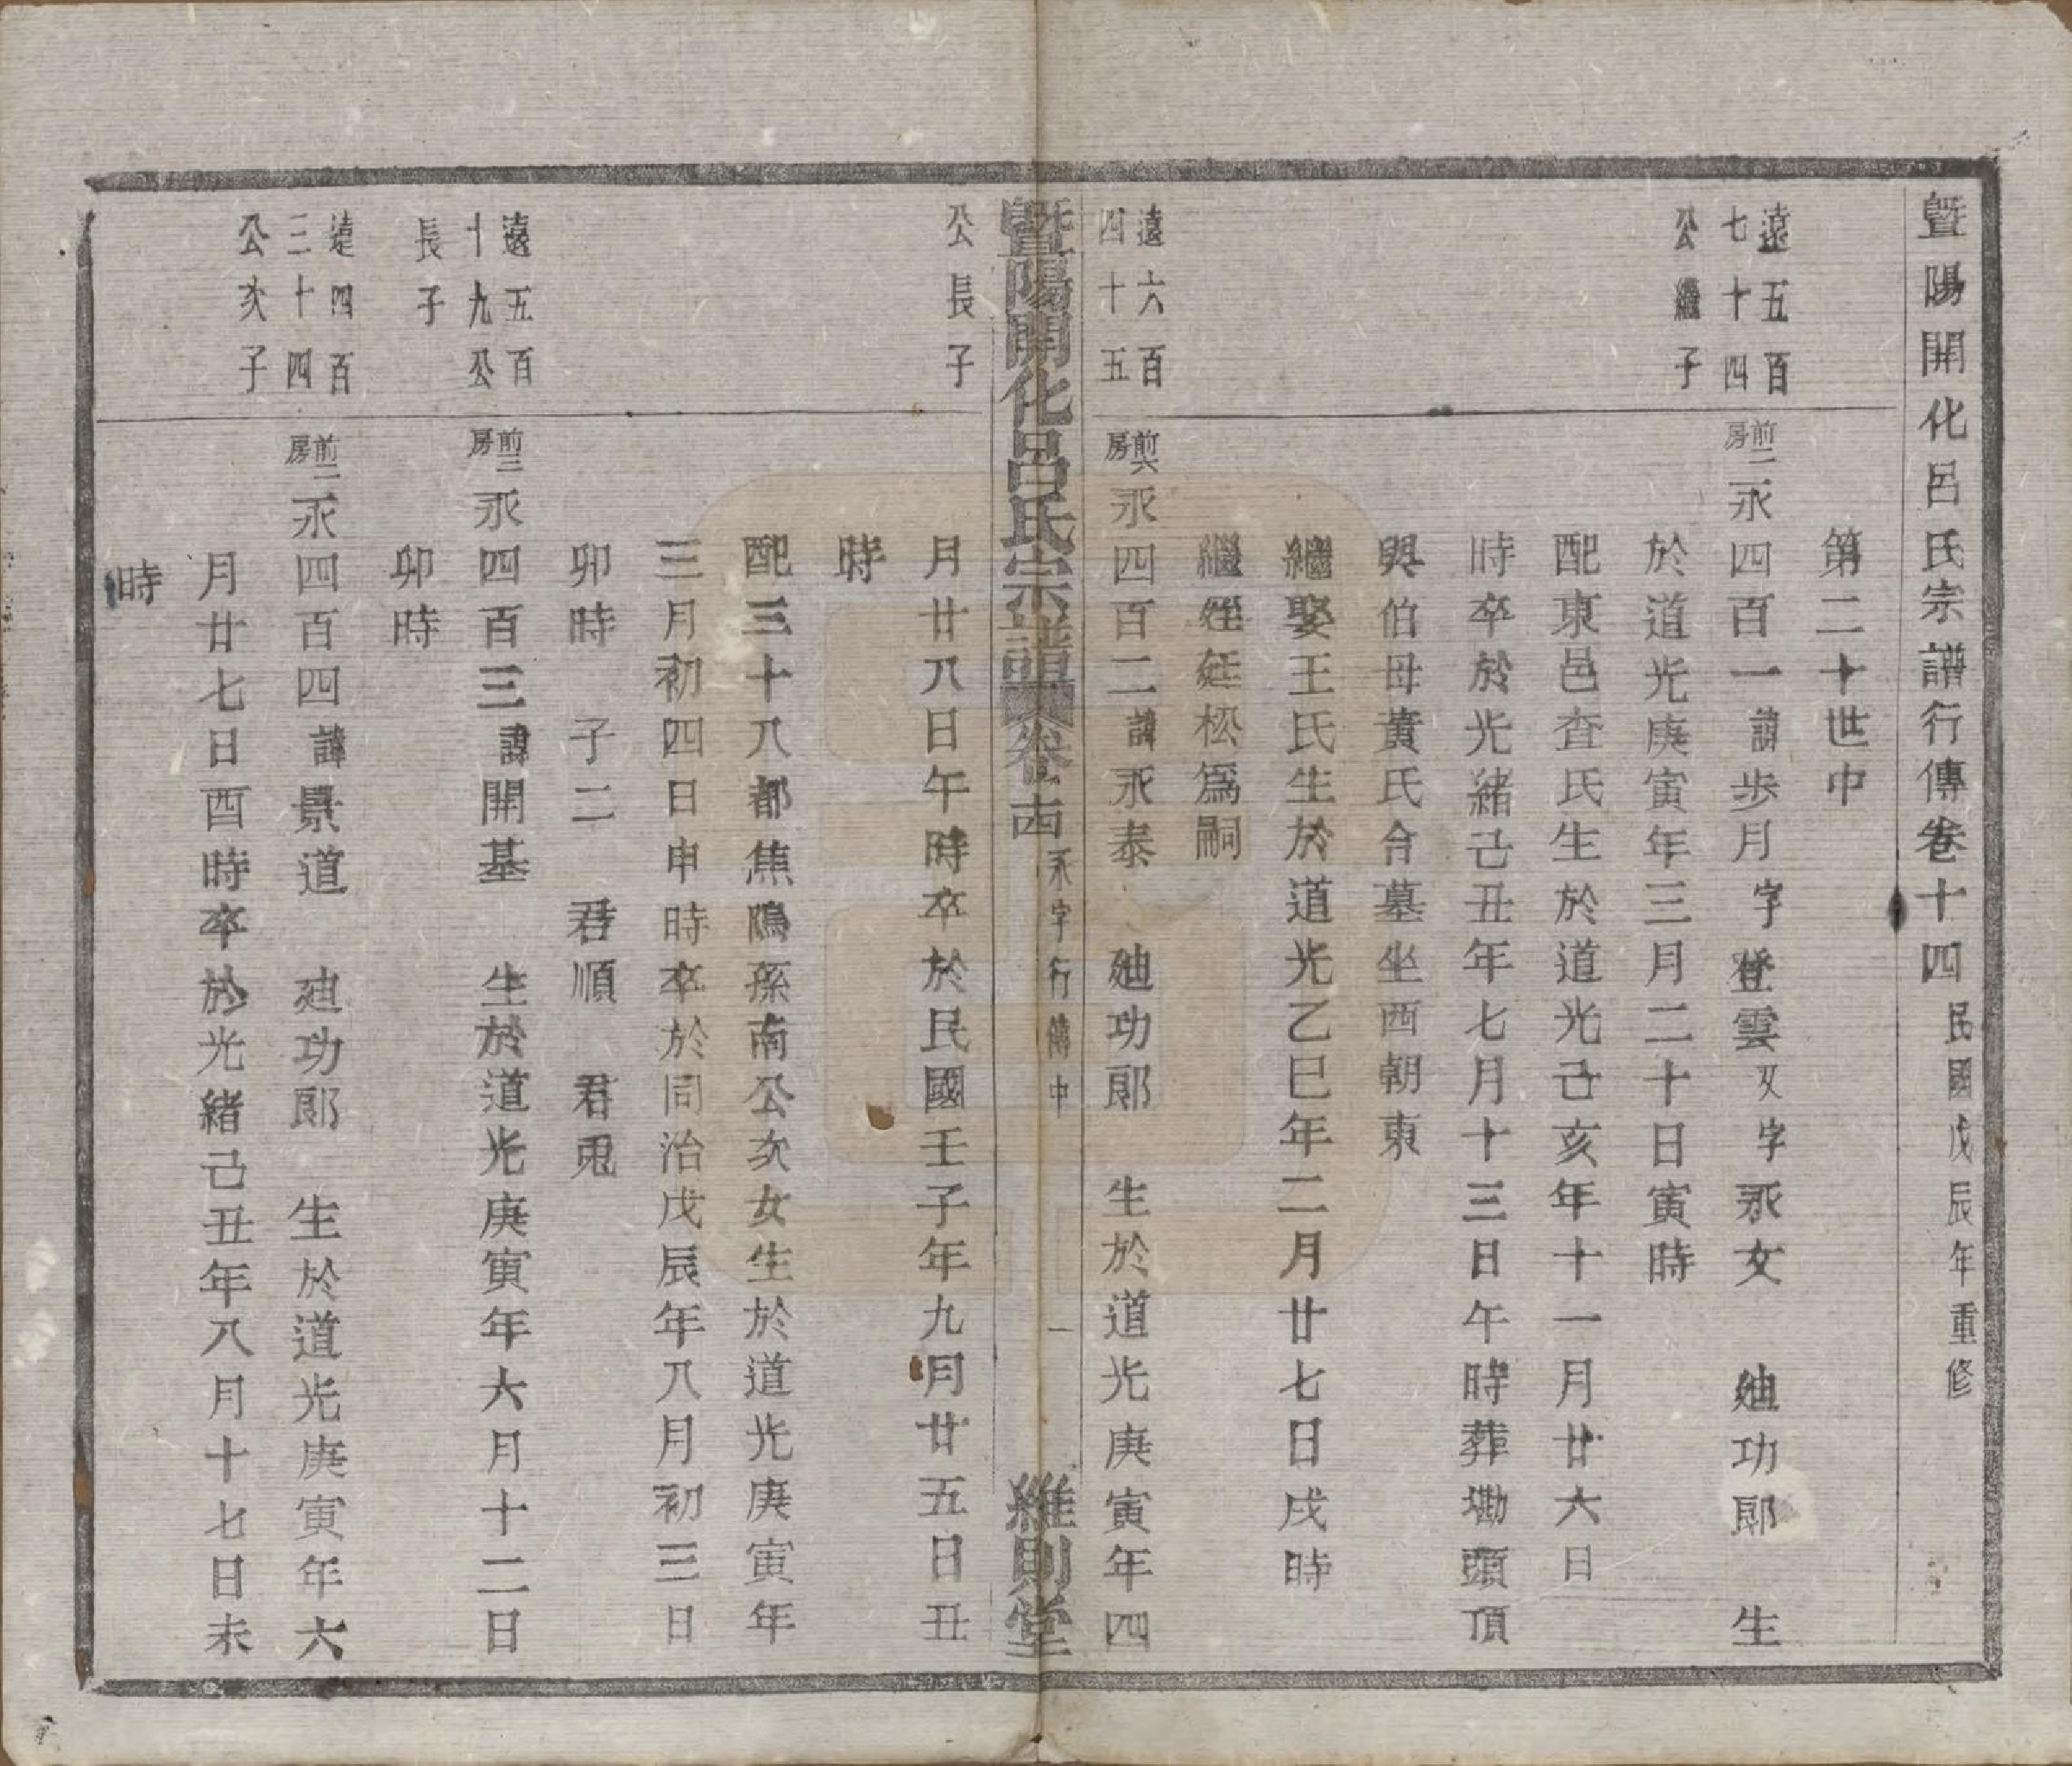 暨陽開化呂氏宗譜行傳卷十四 民國戊辰年重修
第二十世中
遠五百
七十四
公繼子
前二房 永四百一 諱步月 字登雲 又字永文 廸功郎 生
於道光庚寅年三月二十日寅時
配東邑查氏生於道光己亥年十一月廿六日
時卒於光緒己丑年七月十三日午時葬墈頭頂
與伯母黃氏合墓坐西朝東
繼娶王氏生於道光乙巳年二月廿七日戌時
繼姪廷松爲嗣
遠六百
四十五
前六房 永四百二 諱永泰 廸功郎 生於道光庚寅年四
暨陽開化呂氏宗譜 卷十四 永字行傳中 一 維則堂
公長子
月廿八日午時卒於民國壬子年九月廿五日丑
時
配三十八都焦隖孫南公次女生於道光庚寅年
三月初四日申時卒於同治戊辰年八月初三日
卯時 子二 君順 君兎
遠五百
十九公
長子
前三房 永四百三 諱開基 生於道光庚寅年六月十二日
卯時
遠四百
三十四
公次子
前二房 永四百四 諱景道 廸功郎 生於道光庚寅年六
月廿七日酉時卒於光緒己丑年八月十七日未
時